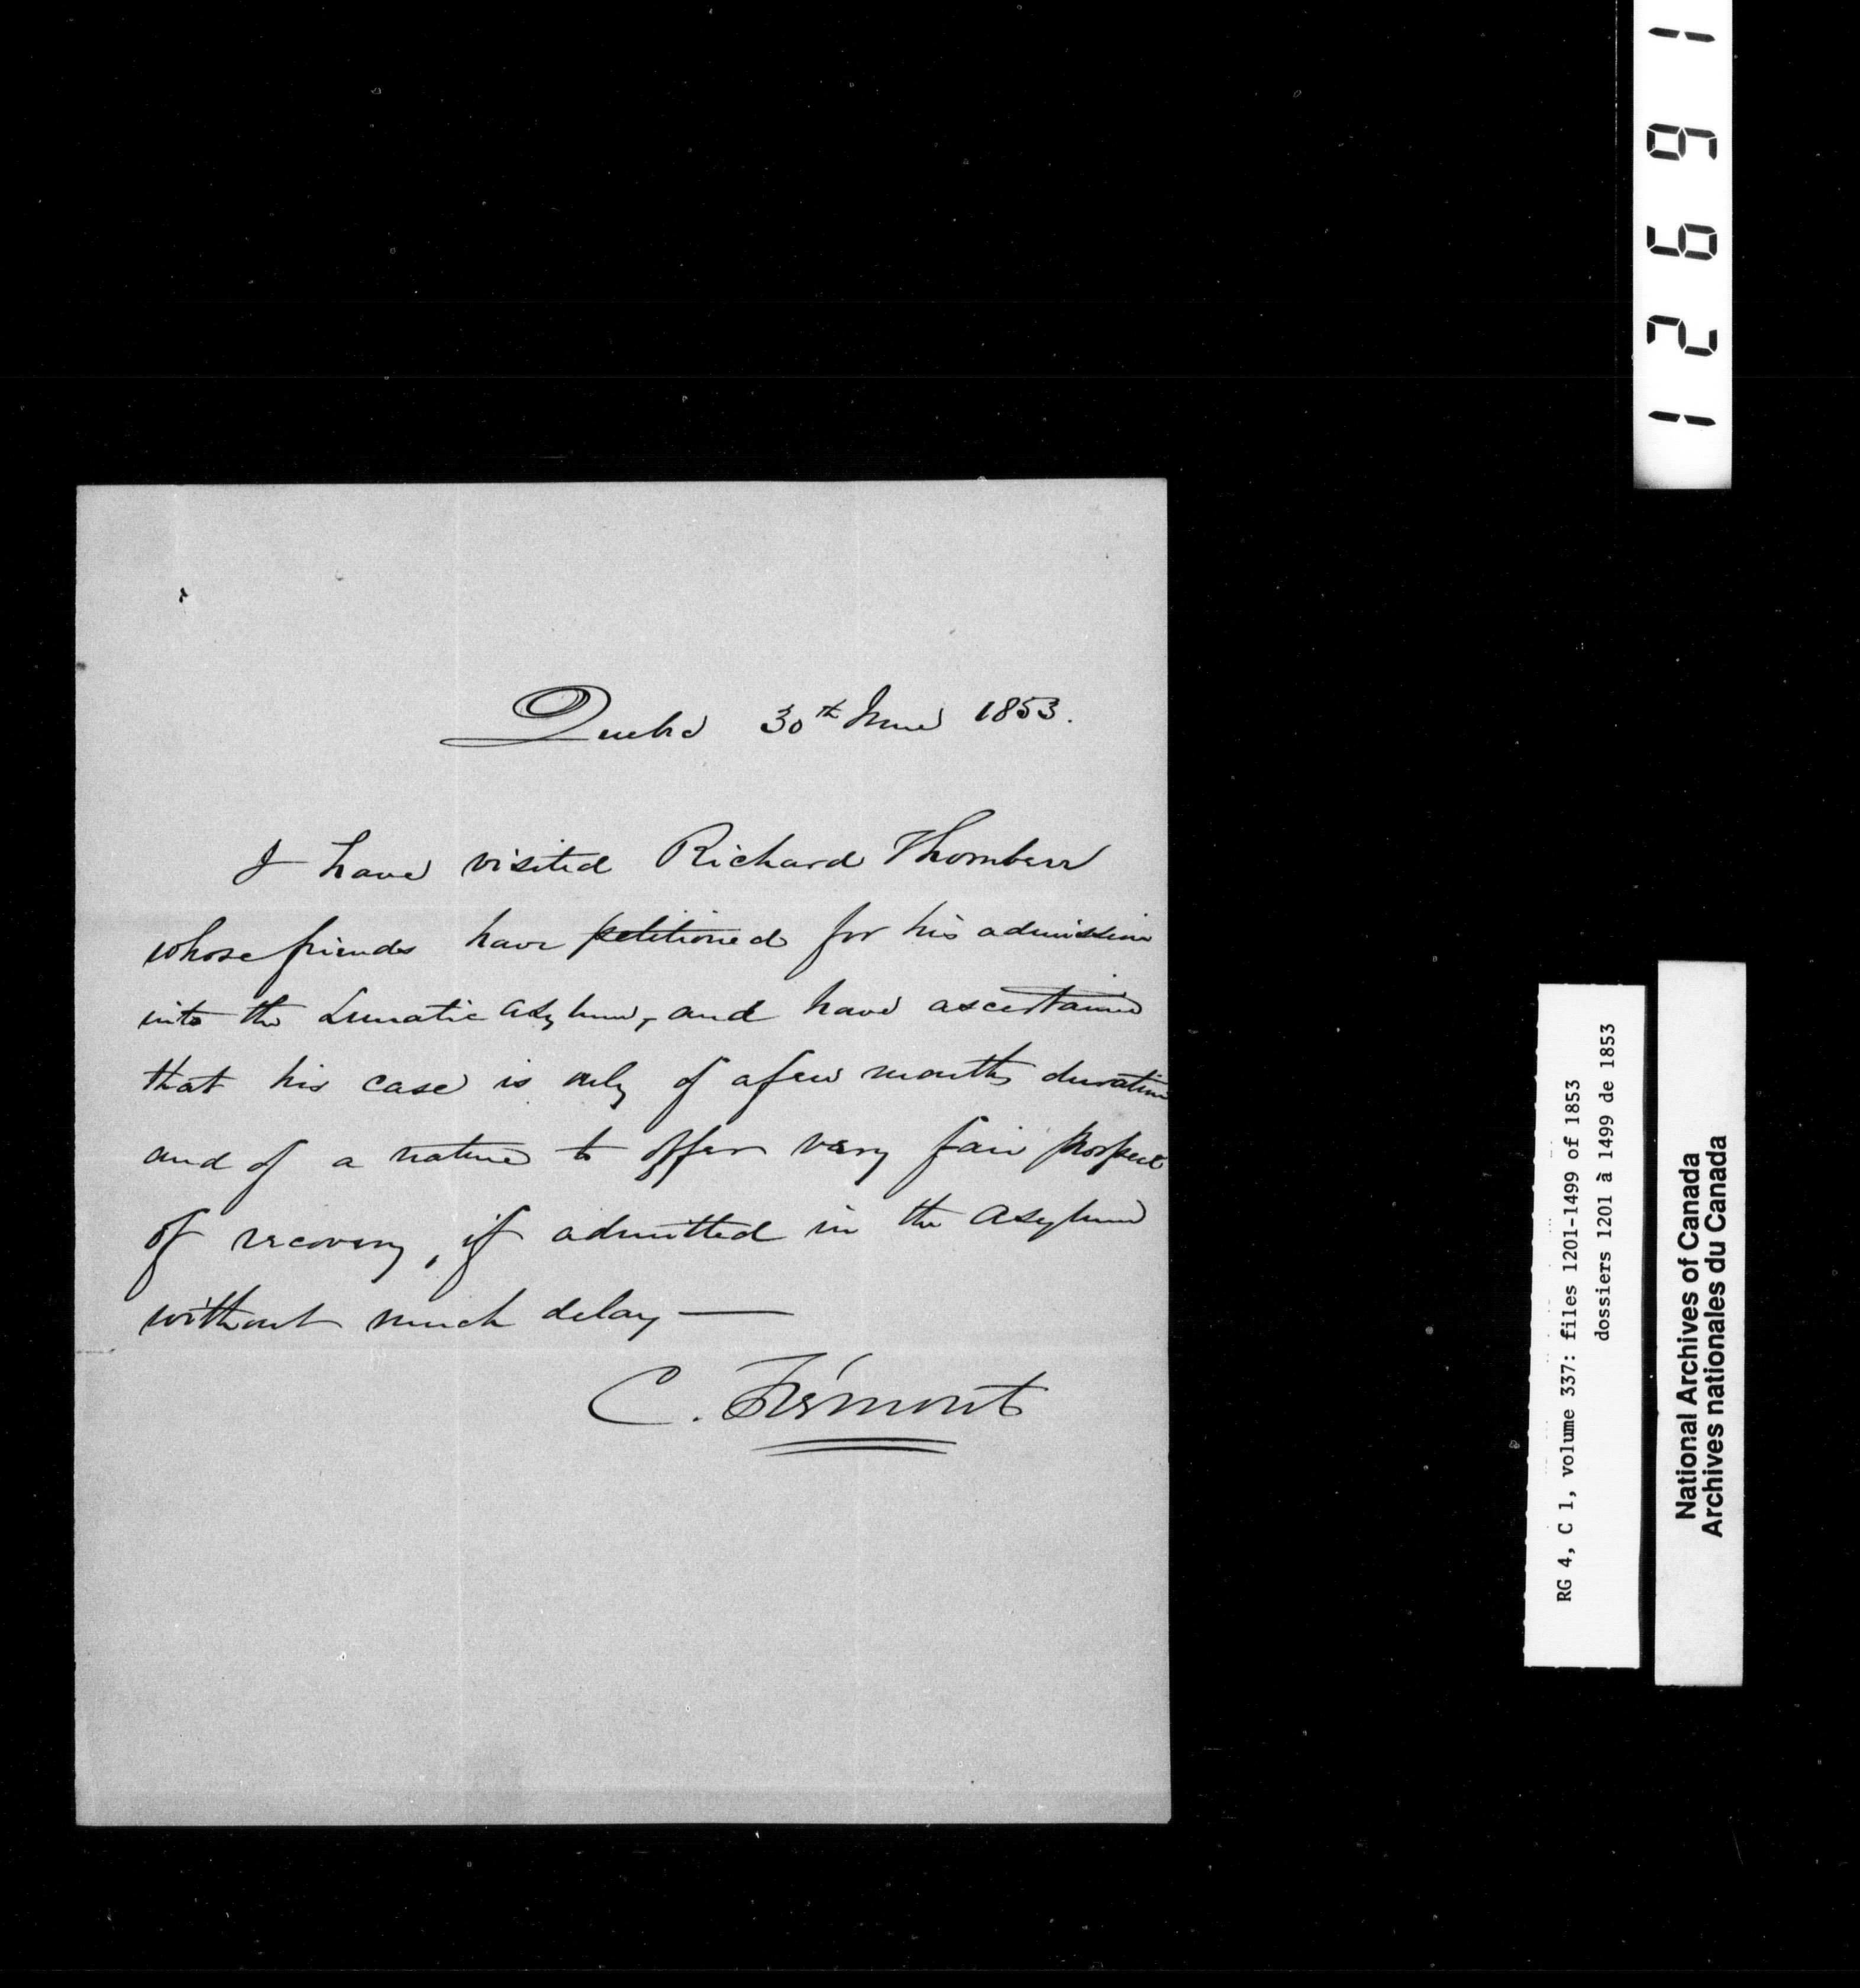 Quebec 30th June 1853.
I have visited Richard
whose friends have petitioned for his admission
into the Lunatic Asylum, and have ascertained
that his case is only of a few months duration
and of a nature to offer very fair prospect
of recovery, if admitted in the Asylum
without much delay —
C. Frémont
12691
RG 4, C 1, volume 337: files 1201-1499 of 1853
dossiers 1201 à 1499 de 1853
National Archives of Canada
Archives nationales du Canada